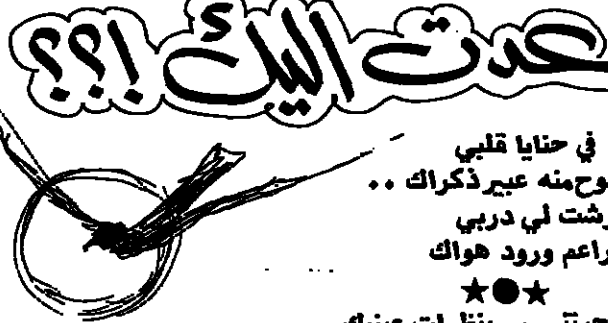 عدت اليك !؟؟
في حنايا قلبي
منه عبير ذكراك ..
لي دربي
ورود هواك